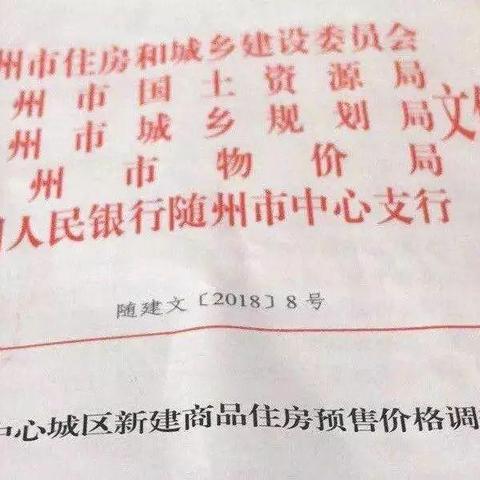 州市住房和城乡建设委员会
州市国土资源局
州市城乡规划局文
州市物价局
人民银行随州市中心支行
随建文〔2018〕8号
中心城区新建商品住房预售价格调